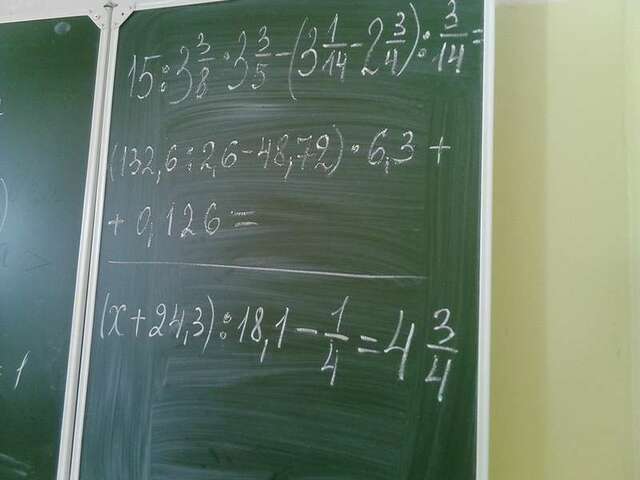 15:3 3/8 · 3 3/5 - (3 1/14 - 2 3/4) : 3/14 =
(132,6 : 2,6 - 48,72) · 6,3 +
+ 0,126 =
(x + 24,3) : 18,1 - 1/4 = 4 3/4
= 1